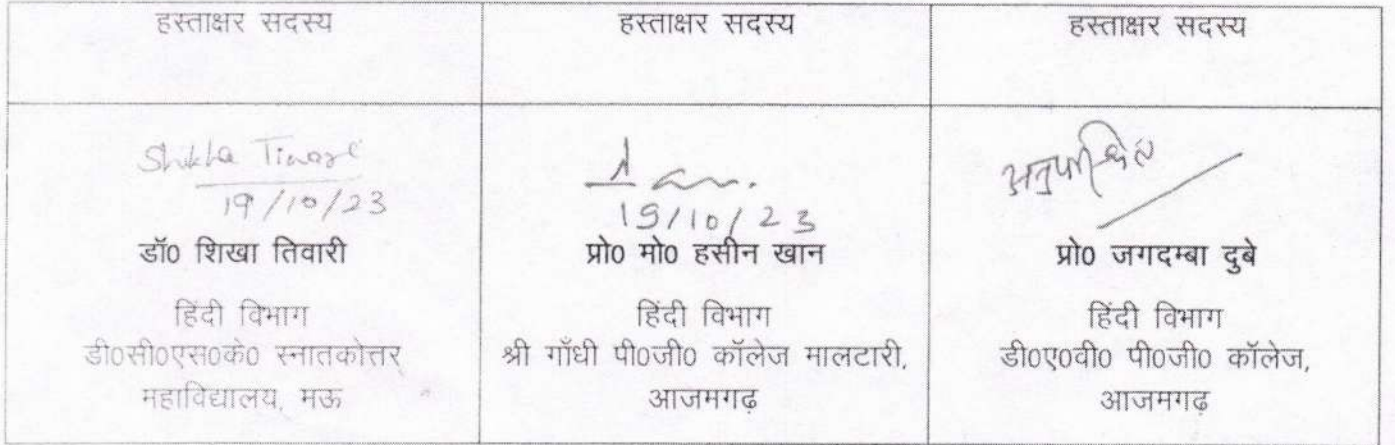 हस्ताक्षर सदस्य
हस्ताक्षर सदस्य
हस्ताक्षर सदस्य
Shikha Tiwari
19/10/23
डॉ0 शिखा तिवारी
हिंदी विभाग
डी0सी0एस0के0 स्नातकोत्तर
महाविद्यालय, मऊ
19/10/23
प्रो0 मो0 हसीन खान
हिंदी विभाग
श्री गाँधी पी0जी0 कॉलेज मालटारी,
आजमगढ़
अनुपस्थित
प्रो0 जगदम्बा दुबे
हिंदी विभाग
डी0ए0वी0 पी0जी0 कॉलेज,
आजमगढ़